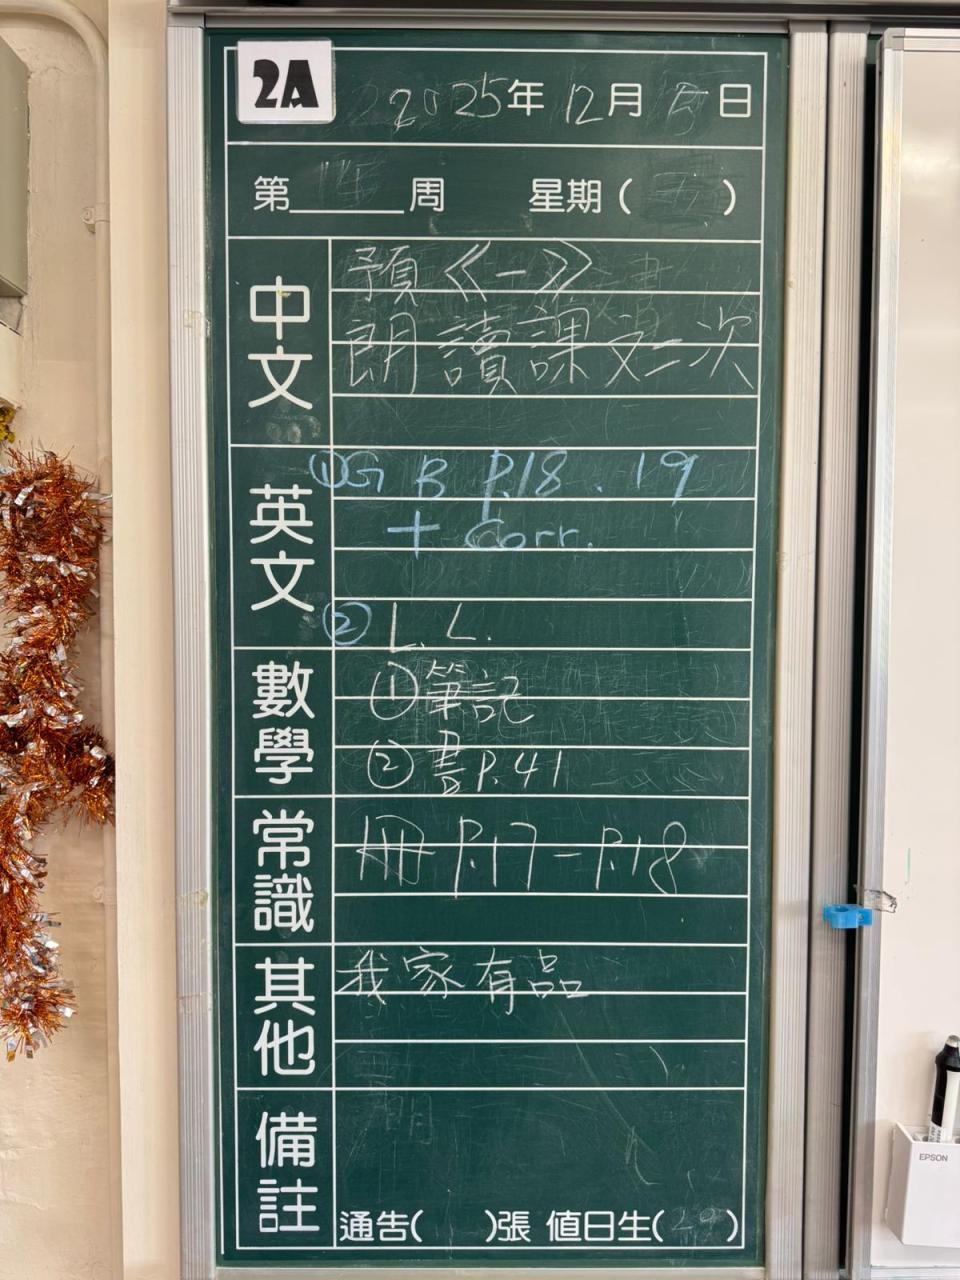 2A 2025年12月5日
第 周 星期( )
中文
預《一》
朗讀課文二次
英文
①G B P.18 . 19
+ Corr.
② L. L.
數學
①筆記
②書P.41
常識
冊 P.17 - P.18
其他
我家有品
備註
通告( )張 值日生( )
EPSON